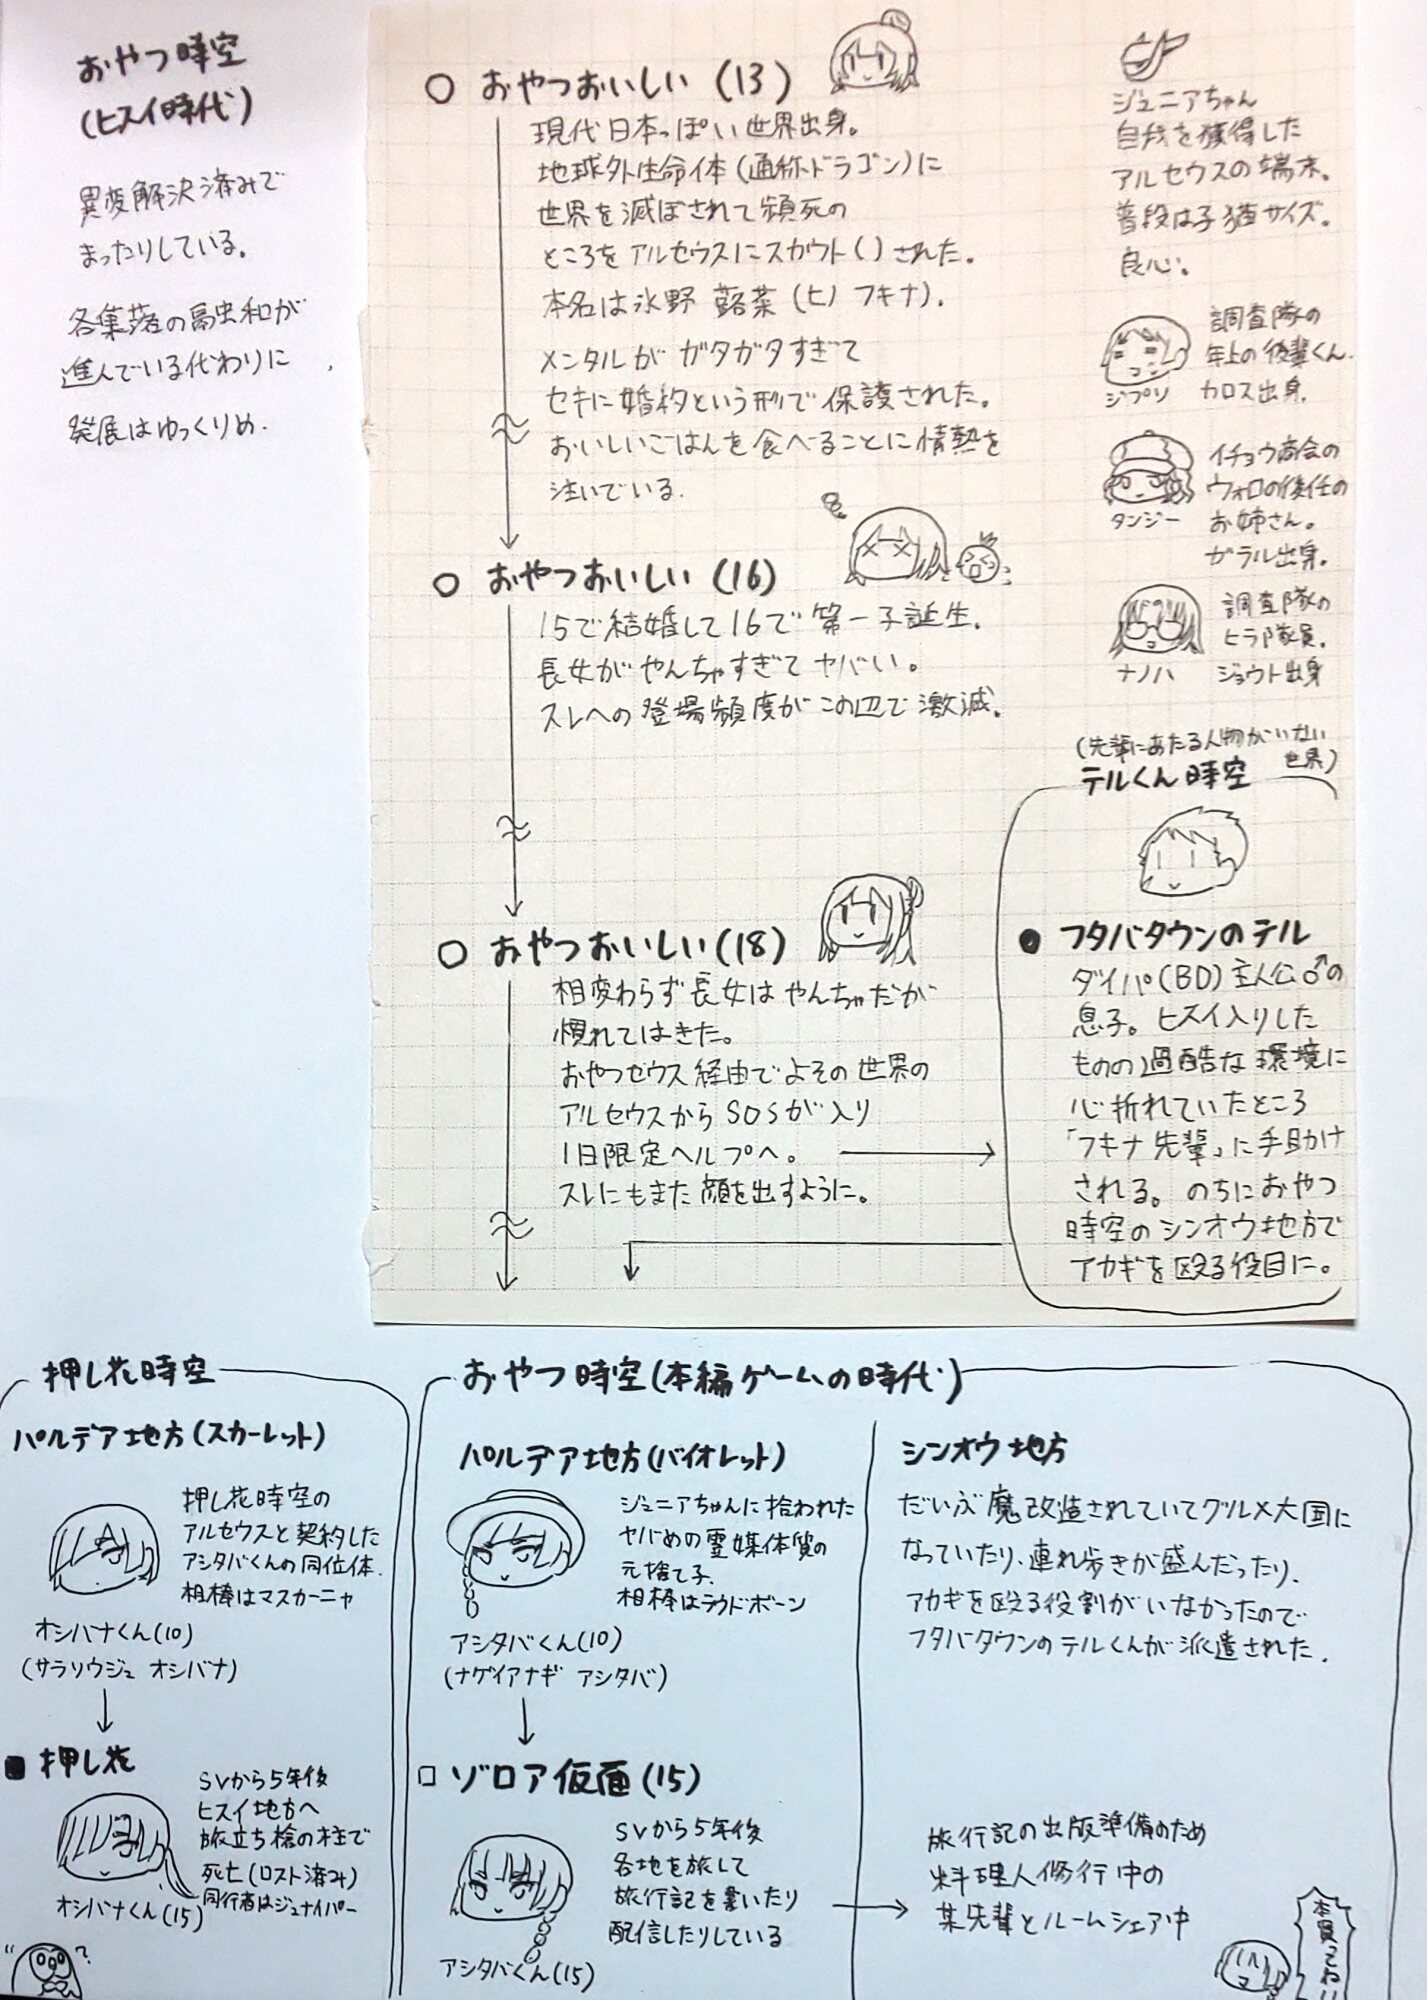 おやつ時空
(ヒスイ時代)
異変解決済みで
まったりしている。
各集落の融和が
進んでいる代わりに
発展はゆっくりめ.
○ おやつおいしい (13)
現代日本っぽい世界出身。
地球外生命体(通称ドラゴン)に
世界を滅ぼされて瀕死の
ところをアルセウスにスカウト()された。
本名は氷野 蕗菜 (ヒノ フキナ).
メンタルがガタガタすぎて
セキに婚約という形で保護された。
おいしいごはんを食べることに情熱を
注いでいる.
○ おやつおいしい (16)
15で結婚して16で第一子誕生.
長女がやんちゃすぎてヤバい。
スレへの登場頻度がこの辺で激減.
○ おやつおいしい(18)
相変わらず長女はやんちゃだが
慣れてはきた。
おやつゼウス経由でよその世界の
アルセウスからSOSが入り
1日限定ヘルプへ。
スレにもまた顔を出すように。
ジュニアちゃん
自我を獲得した
アルセウスの端末。
普段は子猫サイズ.
良心.
ジプソ
調査隊の
年上の後輩くん.
カロス出身.
タンジー
イチョウ商会の
ウォロの後任の
お姉さん。
ガラル出身.
ナノハ
調査隊の
ヒラ隊員.
ジョウト出身
(先輩にあたる人物がいない
世界)
テルくん時空
● フタバタウンのテル
ダイパ(BD)主人公♂の
息子。ヒスイ入りした
ものの過酷な環境に
心折れていたところ
「フキナ先輩」に手助け
される。のちにおやつ
時空のシンオウ地方で
アカギを殴る役目に。
押し花時空
パルデア地方(スカーレット)
押し花時空の
アルセウスと契約した
アシタバくんの同位体.
相棒はマスカーニャ
オシバナくん(10)
(サラソウジュ オシバナ)
■ 押し花
SVから5年後
ヒスイ地方へ
旅立ち槍の柱で
死亡(ロスト済み)
同行者はジュナイパー
オシバナくん(15)
?
おやつ時空(本編ゲームの時代)
パルデア地方(バイオレット)
ジュニアちゃんに拾われた
ヤバめの霊媒体質の
元捨て子.
相棒はラウドボーン
アシタバくん(10)
(ナゲイアナギ アシタバ)
□ ゾロア仮面(15)
SVから5年後
各地を旅して
旅行記を書いたり
配信したりしている
アシタバくん(15)
シンオウ地方
だいぶ魔改造されていてグルメ大国に
なっていたり、連れ歩きが盛んだったり、
アカギを殴る役割がいなかったので
フタバタウンのテルくんが派遣された.
旅行記の出版準備のため
料理人修行中の
某先輩とルームシェア中
本買ってね!!